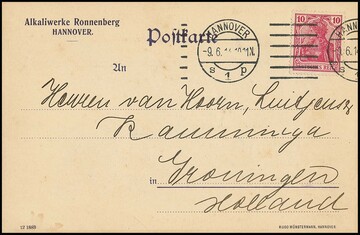 Alkaliwerke Ronnenberg
HANNOVER.
Postkarte
HANNOVER
-9.6.14.
S 1 P
10 10
An
Herren van Hoorn, Luitjens,
Kamminga
in Groningen
Holland